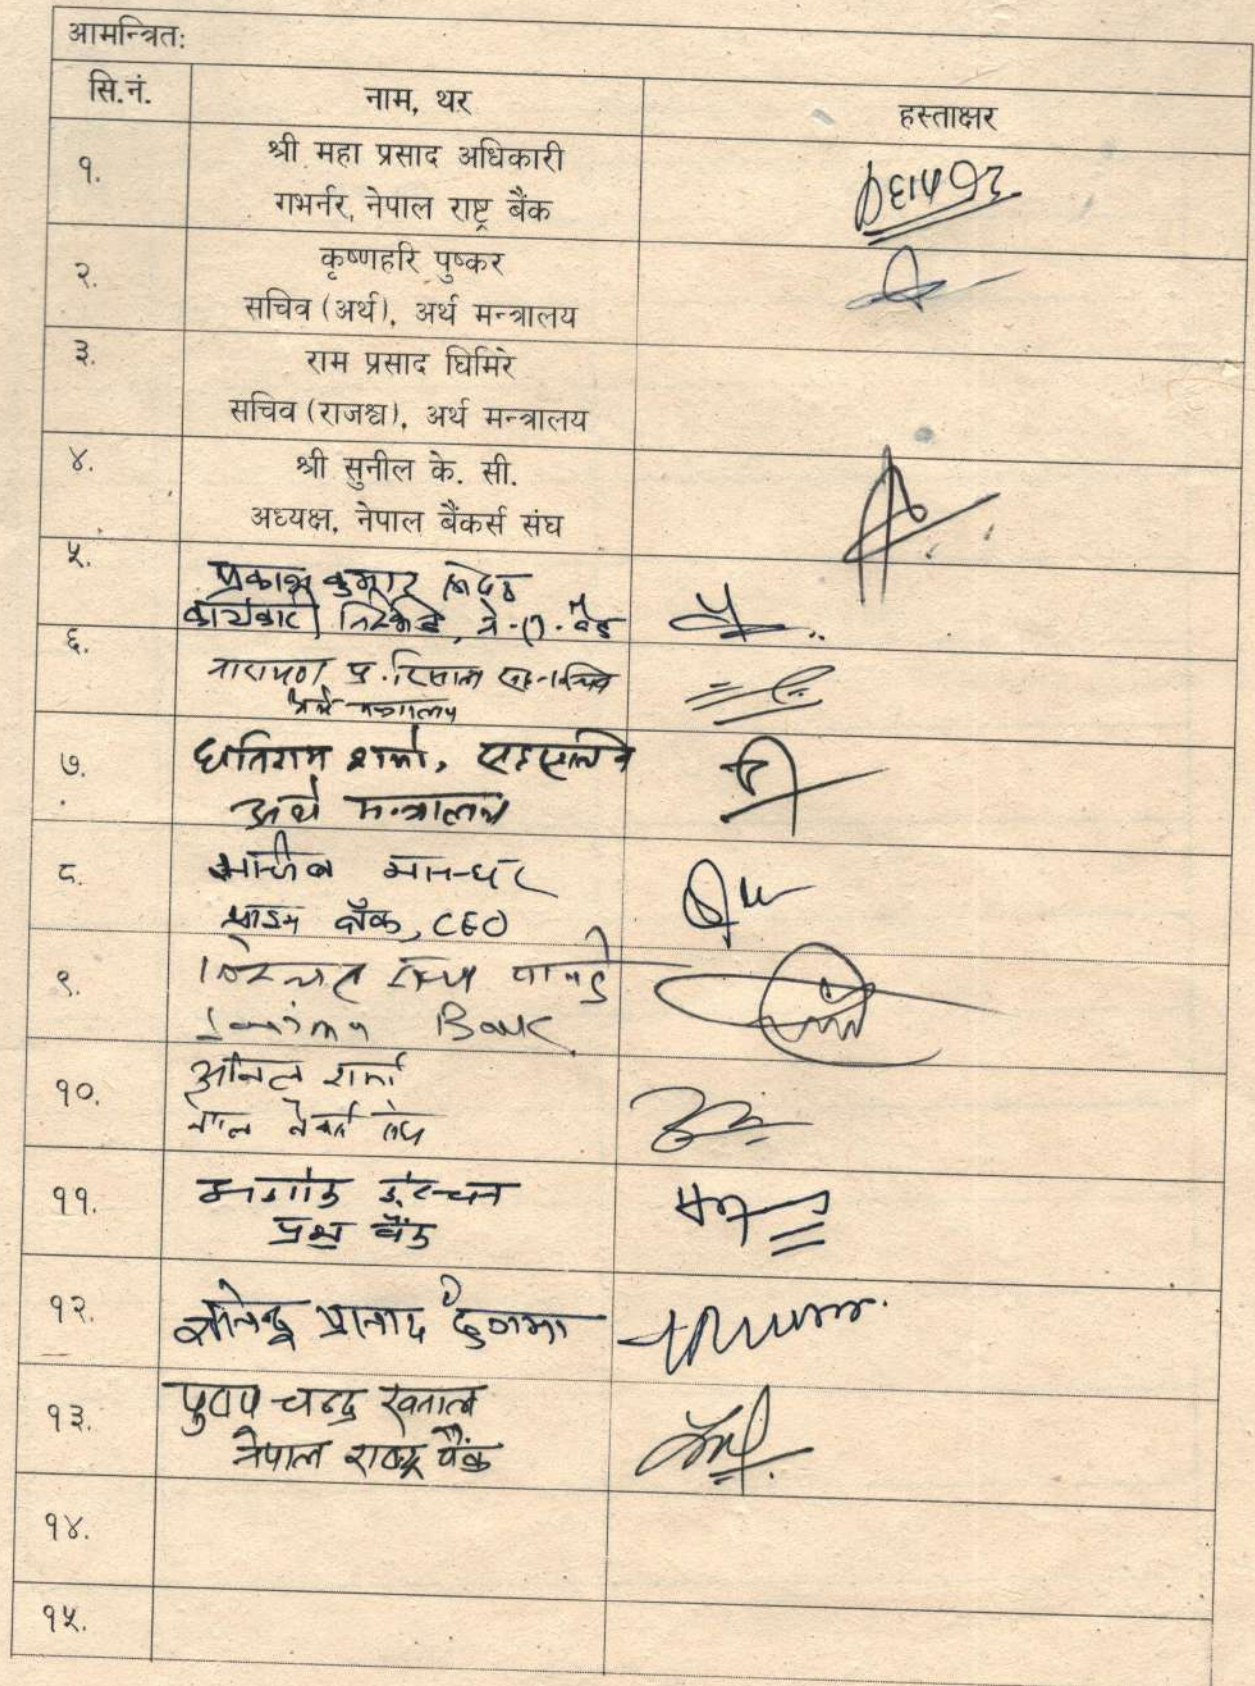 आमन्त्रितः
सि.नं. नाम, थर हस्ताक्षर
१. श्री महा प्रसाद अधिकारी
गभर्नर, नेपाल राष्ट्र बैंक
२. कृष्णहरि पुष्कर
सचिव (अर्थ), अर्थ मन्त्रालय
३. राम प्रसाद घिमिरे
सचिव (राजश्व), अर्थ मन्त्रालय
४. श्री सुनील के. सी.
अध्यक्ष, नेपाल बैंकर्स संघ
५. प्रकाश कुमार श्रेष्ठ
कार्यकारी निर्देशक, ने.रा.बैंक
६. नारायण प्र. रिसाल सह-सचिव
अर्थ मन्त्रालय
७. धनिराम शर्मा, सहसचिव
अर्थ मन्त्रालय
८. मानन्धर
बैंक, CEO
९. पाण्डे
Bank
१०. अनिल शर्मा
नेपाल बैंकर्स संघ
११.
बैंक
१२. प्रसाद ढुंगाना
१३. चन्द्र खनाल
नेपाल राष्ट्र बैंक
१४.
१५.